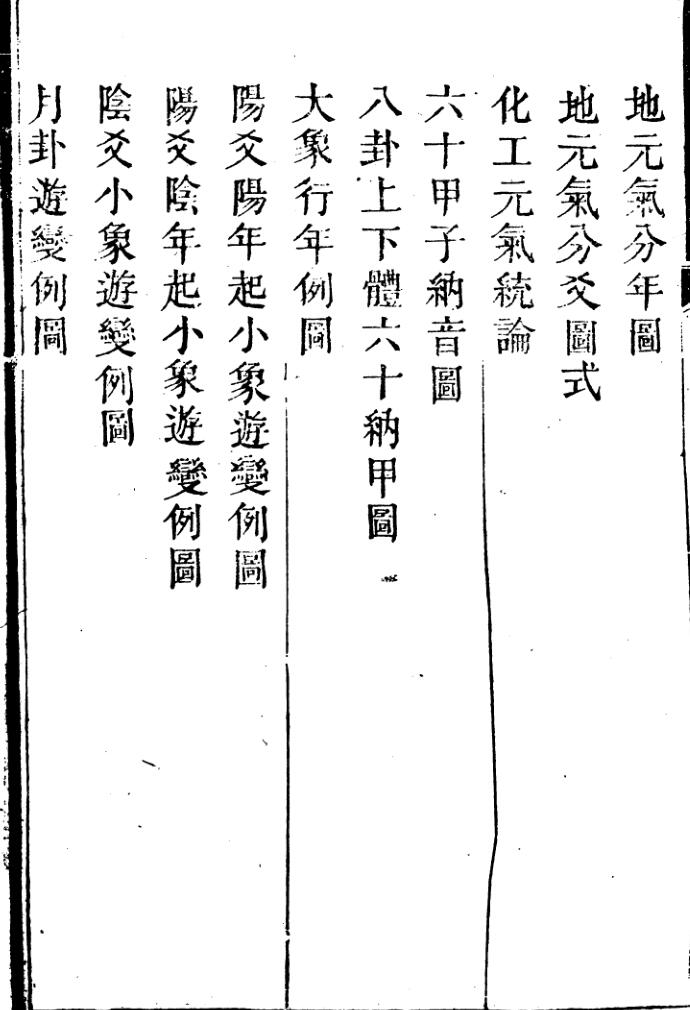 地元氣分年圖
地元氣分爻圖式
化工元氣統論
六十甲子納音圖
八卦上下體六十納甲圖
大象行年例圖
陽爻陽年起小象遊變例圖
陽爻陰年起小象遊變例圖
陰爻小象遊變例圖
月卦遊變例圖